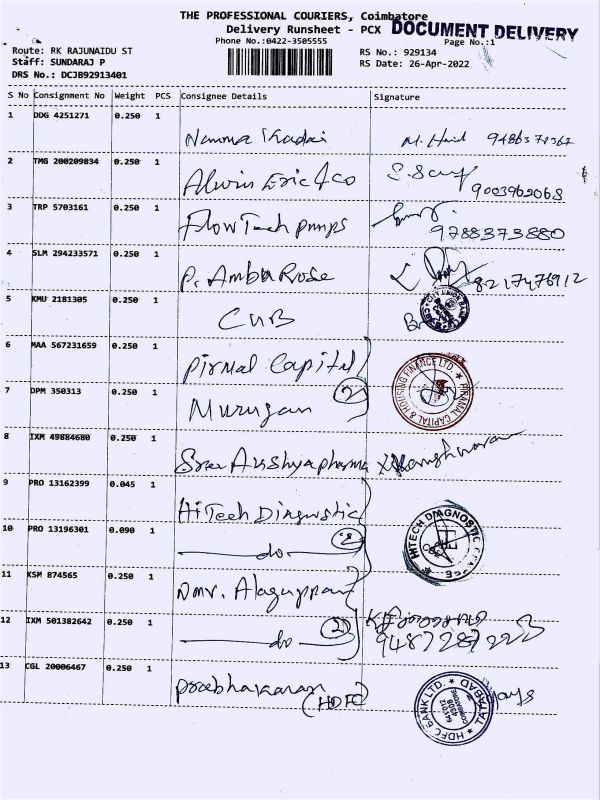 THE PROFESSIONAL COURIERS, Coimbatore
Delivery Runsheet - PCX DOCUMENT DELIVERY
Phone No.:0422-3505555 Page No.:1
Route: RK RAJUNAIDU ST RS No.: 929134
Staff: SUNDARAJ P RS Date: 26-Apr-2022
DRS No.: DCJB92913401
S No Consignment No Weight PCS Consignee Details Signature
1 DDG 4251271 0.250 1
Namma Kadai
2 TMG 200209834 0.250 1
Alwin Eric & co 9003962068
3 TRP 5703161 0.250 1
FlowTech pumps 9788373880
4 SLM 294233571 0.250 1
P. Amba Rose 8217476912
5 KMU 2181305 0.250 1
CUB CITY UNION BANK
6 MAA 567231659 0.250 1
Pirmal Capital
PIRAMAL CAPITAL & HOUSING FINANCE LTD.
7 DPM 350313 0.250 1
Murugan (2)
8 IXM 49884680 0.250 1
Sree Aushya pharma
9 PRO 13162399 0.045 1
HiTech Diagnostic
HITECH DIAGNOSTIC CENTRE
10 PRO 13196301 0.090 1
do (2)
11 KSM 874565 0.250 1
Dmr. Alaguppan
12 IXM 501382642 0.250 1
do (2) 9487287223
13 CGL 20006467 0.250 1
Prabhakaran
(HDFC)
HDFC BANK LTD. TATABAD
COIMBATORE